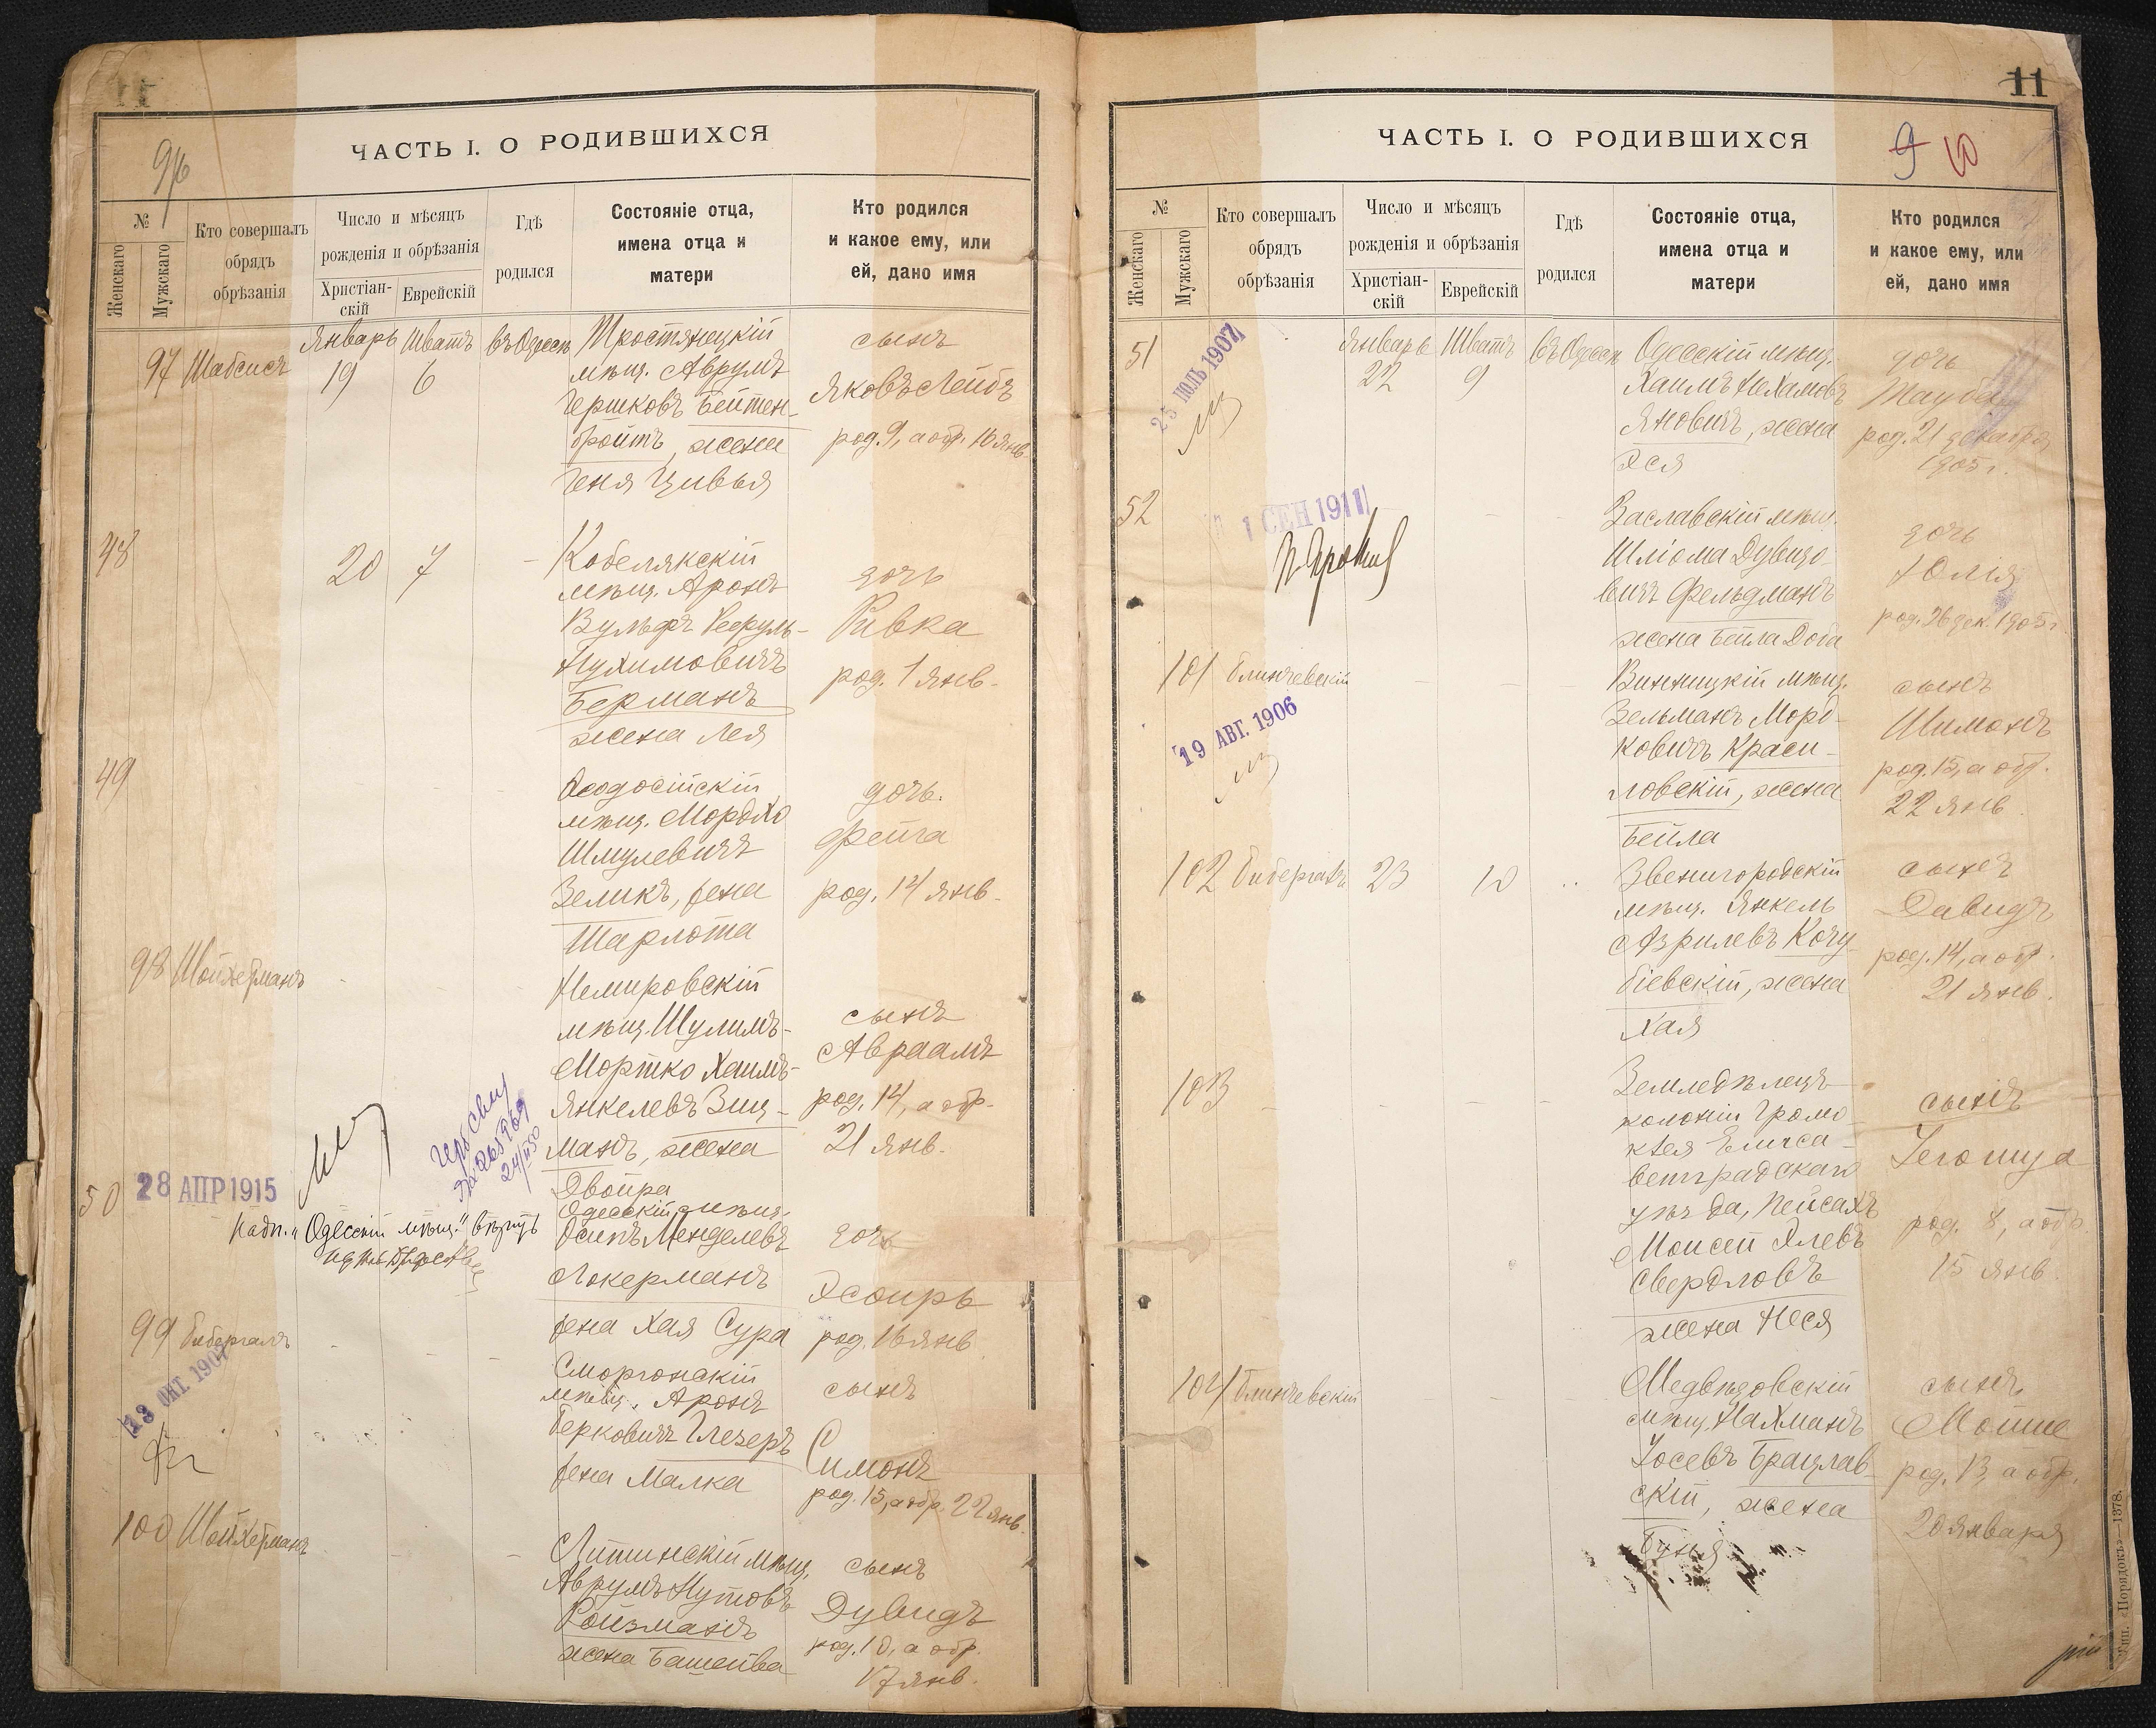 ЧАСТЬ I. О РОДИВШИХСЯ
№
Женскаго
Мужскаго
Кто совершалъ
обрядъ
обрѣзанія
Число и мѣсяцъ
рожденія и обрѣзанія
Христіан-
скій
Еврейскій
Гдѣ
родился
Состояніе отца,
имена отца и
матери
Кто родился
и какое ему, или
ей, дано имя
97 Шабсисъ
Январь Шватъ въ Одессѣ
19 6
Тростянецкій
мѣщ. Аврумъ
Гершковъ Бейтен-
бройтъ, жена
Геня Цивья
сынъ
Яковъ Лейбъ
род. 9, а обр. 16 янв.
48
20 7
Кобелякскій
мѣщ. Аронъ
Вульфъ
Нухимовичъ
Берманъ
жена Лея
дочь
Ривка
род. 1 янв.
49
Ѳеодосійскій
мѣщ. Мордко
Шмулевичъ
Зеликъ, жена
Шарлота
дочь.
Фейга
род. 14 янв.
98 Шойхерманъ
Немировскій
мѣщ. Шулимъ-
Мортко Хаимъ-
Янкелевъ Зиц-
манъ, жена
Двойра
сынъ
Авраамъ
род. 14, а обр.
21 янв.
50
28 АПР 1915
Надп. "Одесскій мѣщ." вѣрить
Одесскій мѣщ.
Осипъ Менделевъ
Окерманъ
жена Хая Сура
дочь
Эсѳирь
род. 16 янв.
99 Бибергалъ
13 ОКТ 1907
Сморгонскій
мѣщ. Аронъ
Берковичъ Глезеръ
жена Малка
сынъ
Симонъ
род. 15, а обр. 22 янв.
100 Шойхерманъ
Литинскій мѣщ.
Аврумъ Нутовъ
Ройзманъ
жена Башейва
сынъ
Дувидъ
род. 10, а обр.
17 янв.
11
ЧАСТЬ I. О РОДИВШИХСЯ
9 10
№
Женскаго
Мужскаго
Кто совершалъ
обрядъ
обрѣзанія
Число и мѣсяцъ
рожденія и обрѣзанія
Христіан-
скій
Еврейскій
Гдѣ
родился
Состояніе отца,
имена отца и
матери
Кто родился
и какое ему, или
ей, дано имя
51
25 ІЮЛЬ 1907
Январь Шватъ въ Одессѣ
22 9
Одесскій мѣщ.
Хаимъ Нехамовъ
Яновичъ, жена
Эся
дочь
Тауба
род. 21 декабря
1905 г.
52
1 СЕН 1911
Заславскій мѣщ.
Шліома Дувидо-
вичъ Фельдманъ
жена Бейла Доба
дочь
Юлія
род. 26 дек. 1905 г.
101 Блинчевскій
19 АВГ. 1906
Винницкій мѣщ.
Зельманъ Морд-
ковичъ Краси-
ловскій, жена
Бейла
сынъ
Шимонъ
род. 15, а обр.
22 янв.
102 Бибергалъ 23 10
Звенигородскій
мѣщ. Янкель
Азрилевъ Коцу-
біевскій, жена
Хая
сынъ
Давидъ
род. 14, а обр.
21 янв.
103
Земледѣлецъ
колоніи Громо-
клея Елиса-
ветградскаго
уѣзда, Пейсахъ
Моисей Элевъ
Свердловъ
жена Неся
сынъ
Іегошуа
род. 8, а обр.
15 янв.
104 Блинчевскій
Медвѣдовскій
мѣщ. Нахманъ
Іосевъ Брацлав-
скій, жена
Бунья
сынъ
Мойше
род. 13, а обр.
20 января
Тип. «Порядокъ»—1378.